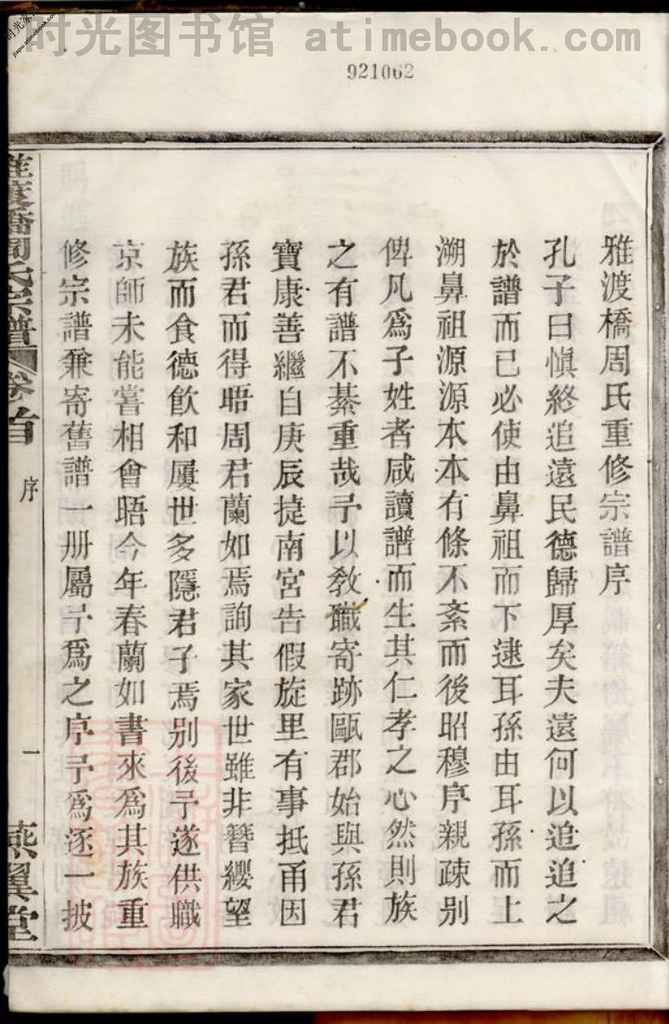 时光图书馆 atimebook.com
921062
雅渡橋周氏重修宗譜序
孔子曰慎終追遠民德歸厚矣夫遠何以追追之
於譜而已必使由鼻祖而下逮耳孫由耳孫而上
溯鼻祖源源本本有條不紊而後昭穆序親疎别
俾凡爲子姓者咸讀譜而生其仁孝之心然則族
之有譜不綦重哉予以教職寄跡甌郡始與孫君
寶康善繼自庚辰捷南宮告假旋里有事抵甬因
孫君而得晤周君蘭如焉詢其家世雖非簪纓望
族而食德飲和屢世多隱君子焉别後予遂供職
京師未能嘗相會晤今年春蘭如書來爲其族重
修宗譜兼寄舊譜一册屬予爲之序予爲逐一披
雅渡橋周氏宗譜 卷首 序 一 燕翼堂